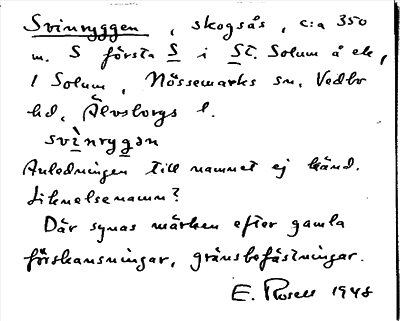 Svinryggen, skogsås, c:a 350
m. S första S i St. Solum å ek,
1 Solum, Nössemarks sn, Vedbo
hd, Älvsborgs l.
svìnryggən
Anledningen till namnet ej känd.
Liknelsenamn?
Där synas märken efter gamla
förskansningar, gränsbefästningar.
E. Rosell 1948